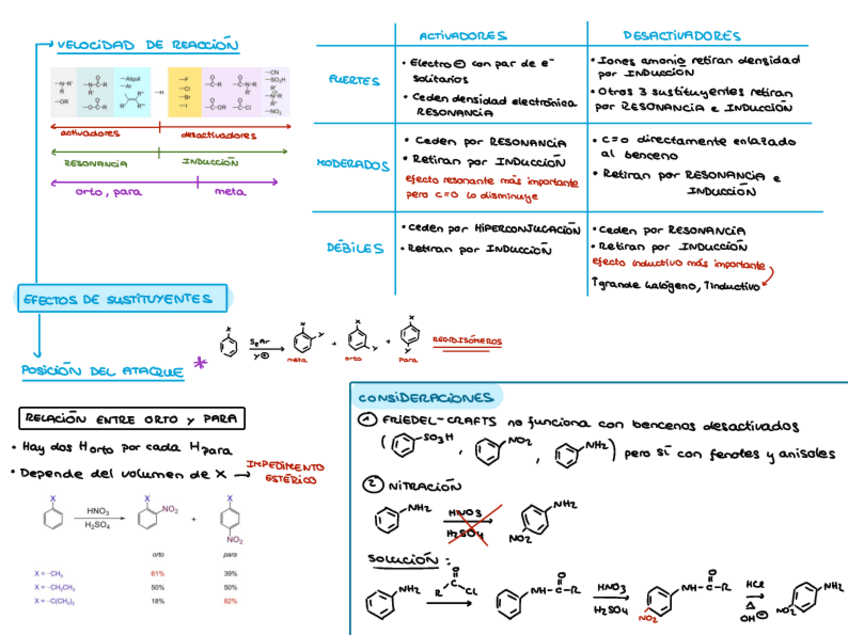 VELOCIDAD DE REACCIÓN
—N—R'
R
—OR
—N—C—R
—O—C—R
—Alquil
—Ar
—H
—F
—Cl
—Br
—I
—CN
—SO₃H
—NO₂
activadores
desactivadores
RESONANCIA
INDUCCIÓN
orto, para
meta
ACTIVADORES
DESACTIVADORES
FUERTES
• Electro ⊖ con par de e⁻
solitarios
• Ceden densidad electrónica
RESONANCIA
• Iones amonio retiran densidad
por INDUCCIÓN
• Otros 3 sustituyentes retiran
por RESONANCIA e INDUCCIÓN
MODERADOS
• Ceden por RESONANCIA
• Retiran por INDUCCIÓN
efecto resonante más importante
pero c=o lo disminuye
• c=o directamente enlazado
al benceno
• Retiran por RESONANCIA e
INDUCCIÓN
DÉBILES
• Ceden por HIPERCONJUGACIÓN
• Retiran por INDUCCIÓN
• Ceden por RESONANCIA
• Retiran por INDUCCIÓN
efecto inductivo más importante
↑grande halógeno, ↑inductivo
EFECTOS DE SUSTITUYENTES
POSICIÓN DEL ATAQUE *
X
SEAr
Y⊕
X
Y
meta
+
X
Y
orto
+
X
Y
para
REGIOISÓMEROS
RELACIÓN ENTRE ORTO y PARA
• Hay dos Horto por cada Hpara
• Depende del volumen de X → IMPEDIMENTO
ESTÉRICO
X
HNO₃
H₂SO₄
X
NO₂
+
X
NO₂
orto
para
X = –CH₃
61%
39%
X = –CH₂CH₃
50%
50%
X = –C(CH₃)₃
18%
82%
CONSIDERACIONES
① FRIEDEL-CRAFTS no funciona con bencenos desactivados
( SO₃H , NO₂ , NH₂ ) pero sí con fenotes y anisoles
② NITRACIÓN
NH₂
HNO₃
H₂SO₄
NH₂
NO₂
SOLUCIÓN:
NH₂
O
R
Cl
NH–C–R
O
HNO₃
H₂SO₄
NH–C–R
O
NO₂
HCl
Δ
OH⊖
NH₂
NO₂